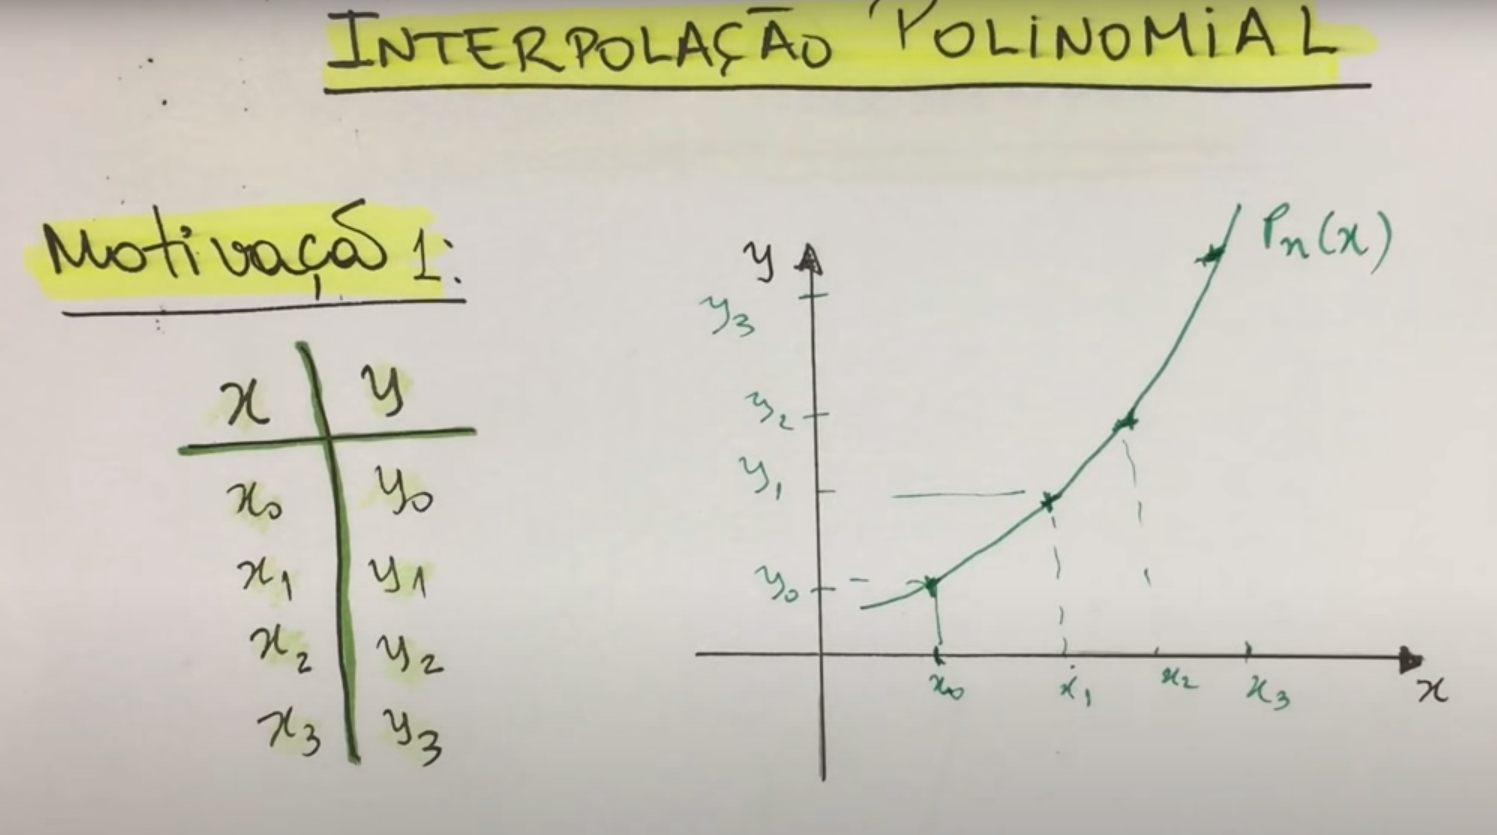 INTERPOLAÇÃO POLINOMIAL
Motivação 1:
x y
x₀ y₀
x₁ y₁
x₂ y₂
x₃ y₃
y
Pₙ(x)
y₃
y₂
y₁
y₀
x₀ x₁ x₂ x₃
x